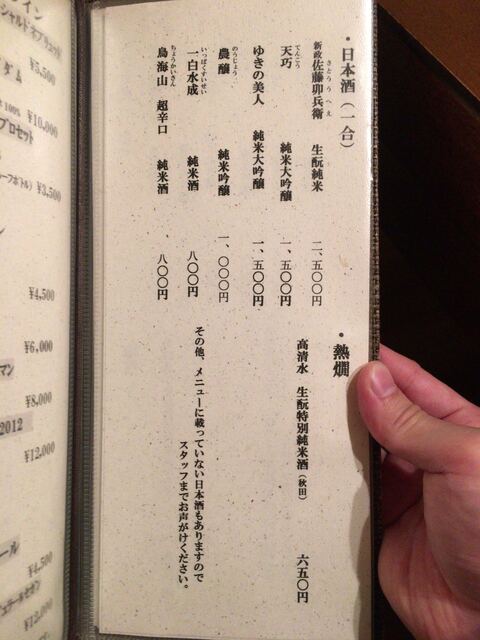 ・日本酒（一合）
新政 佐藤卯兵衛 生酛純米 二、五〇〇円
さとううへえ
天巧 純米大吟醸 一、五〇〇円
てんこう
ゆきの美人 純米大吟醸 一、五〇〇円
農醸 純米吟醸 一、〇〇〇円
のうじょう
一白水成 純米酒 八〇〇円
いっぱくすいせい
鳥海山 超辛口 純米酒 八〇〇円
ちょうかいさん
・熱燗
高清水 生酛特別純米酒（秋田） 六五〇円
その他、メニューに載っていない日本酒もありますので
スタッフまでお声がけください。
¥5,500
ダム
100% ¥10,000
プロセット
ーフボトル） ¥3,500
¥4,500
¥6,000
マン
¥8,000
2012
¥12,000
ール
¥4,500
¥12,000